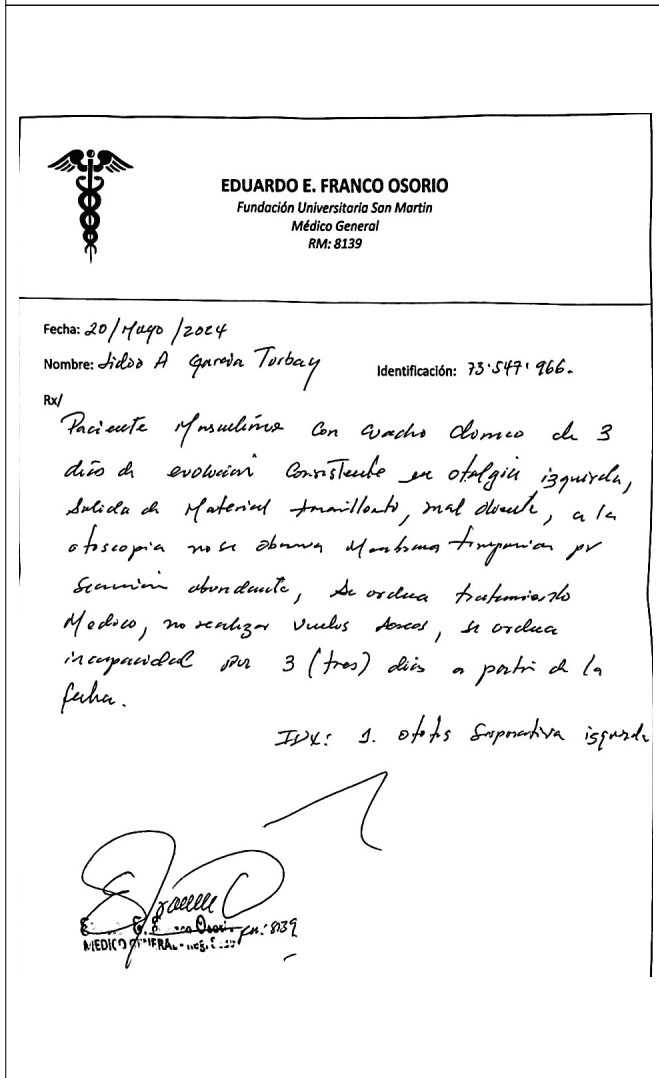 EDUARDO E. FRANCO OSORIO
Fundación Universitaria San Martin
Médico General
RM: 8139
Fecha: 20/Mayo/2024
Nombre: A Turbay Identificación: 73'547'966.
Rx/
Paciente Masculino con cuadro clinico de 3
dias de evolucion consistente en otalgia izquierda,
salida de Material amarillento, mal oliente, a la
otoscopia no se observa Membrana timpanica por
secrecion abundante, se ordena tratamiento
Medico, no realizar vuelos, se ordena
incapacidad por 3 (tres) dias a partir de la
fecha.
IDX: 1. otitis Supurativa izquierda
RM: 8139
MEDICO